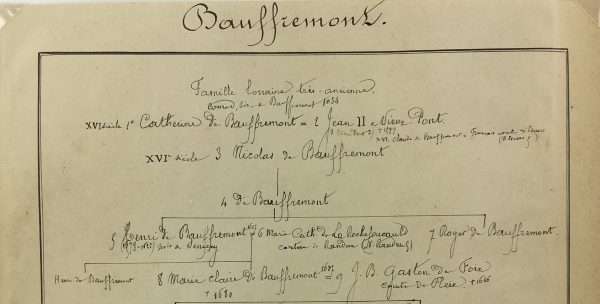 Bauffremont.
Famille lorraine très-ancienne.
Conrad sire de Bauffremont 1034
XVI siècle 1° Catherine de Bauffremont = 2 Jean II de Vieux Pont
+ 1499
XVI Claude de Bauffremont = François
XVIe siècle 3 Nicolas de Bauffremont
4 De Bauffremont
5 Henri de Bauffremont 6 Marie Cathne de La Rochefoucauld 7 Roger de Bauffremont
comtesse de Randan
Henri de Bauffremont 8 Marie Claire de Bauffremont = 9 J. B. Gaston de Foix
+ 1680 comte de Fleix + 1646